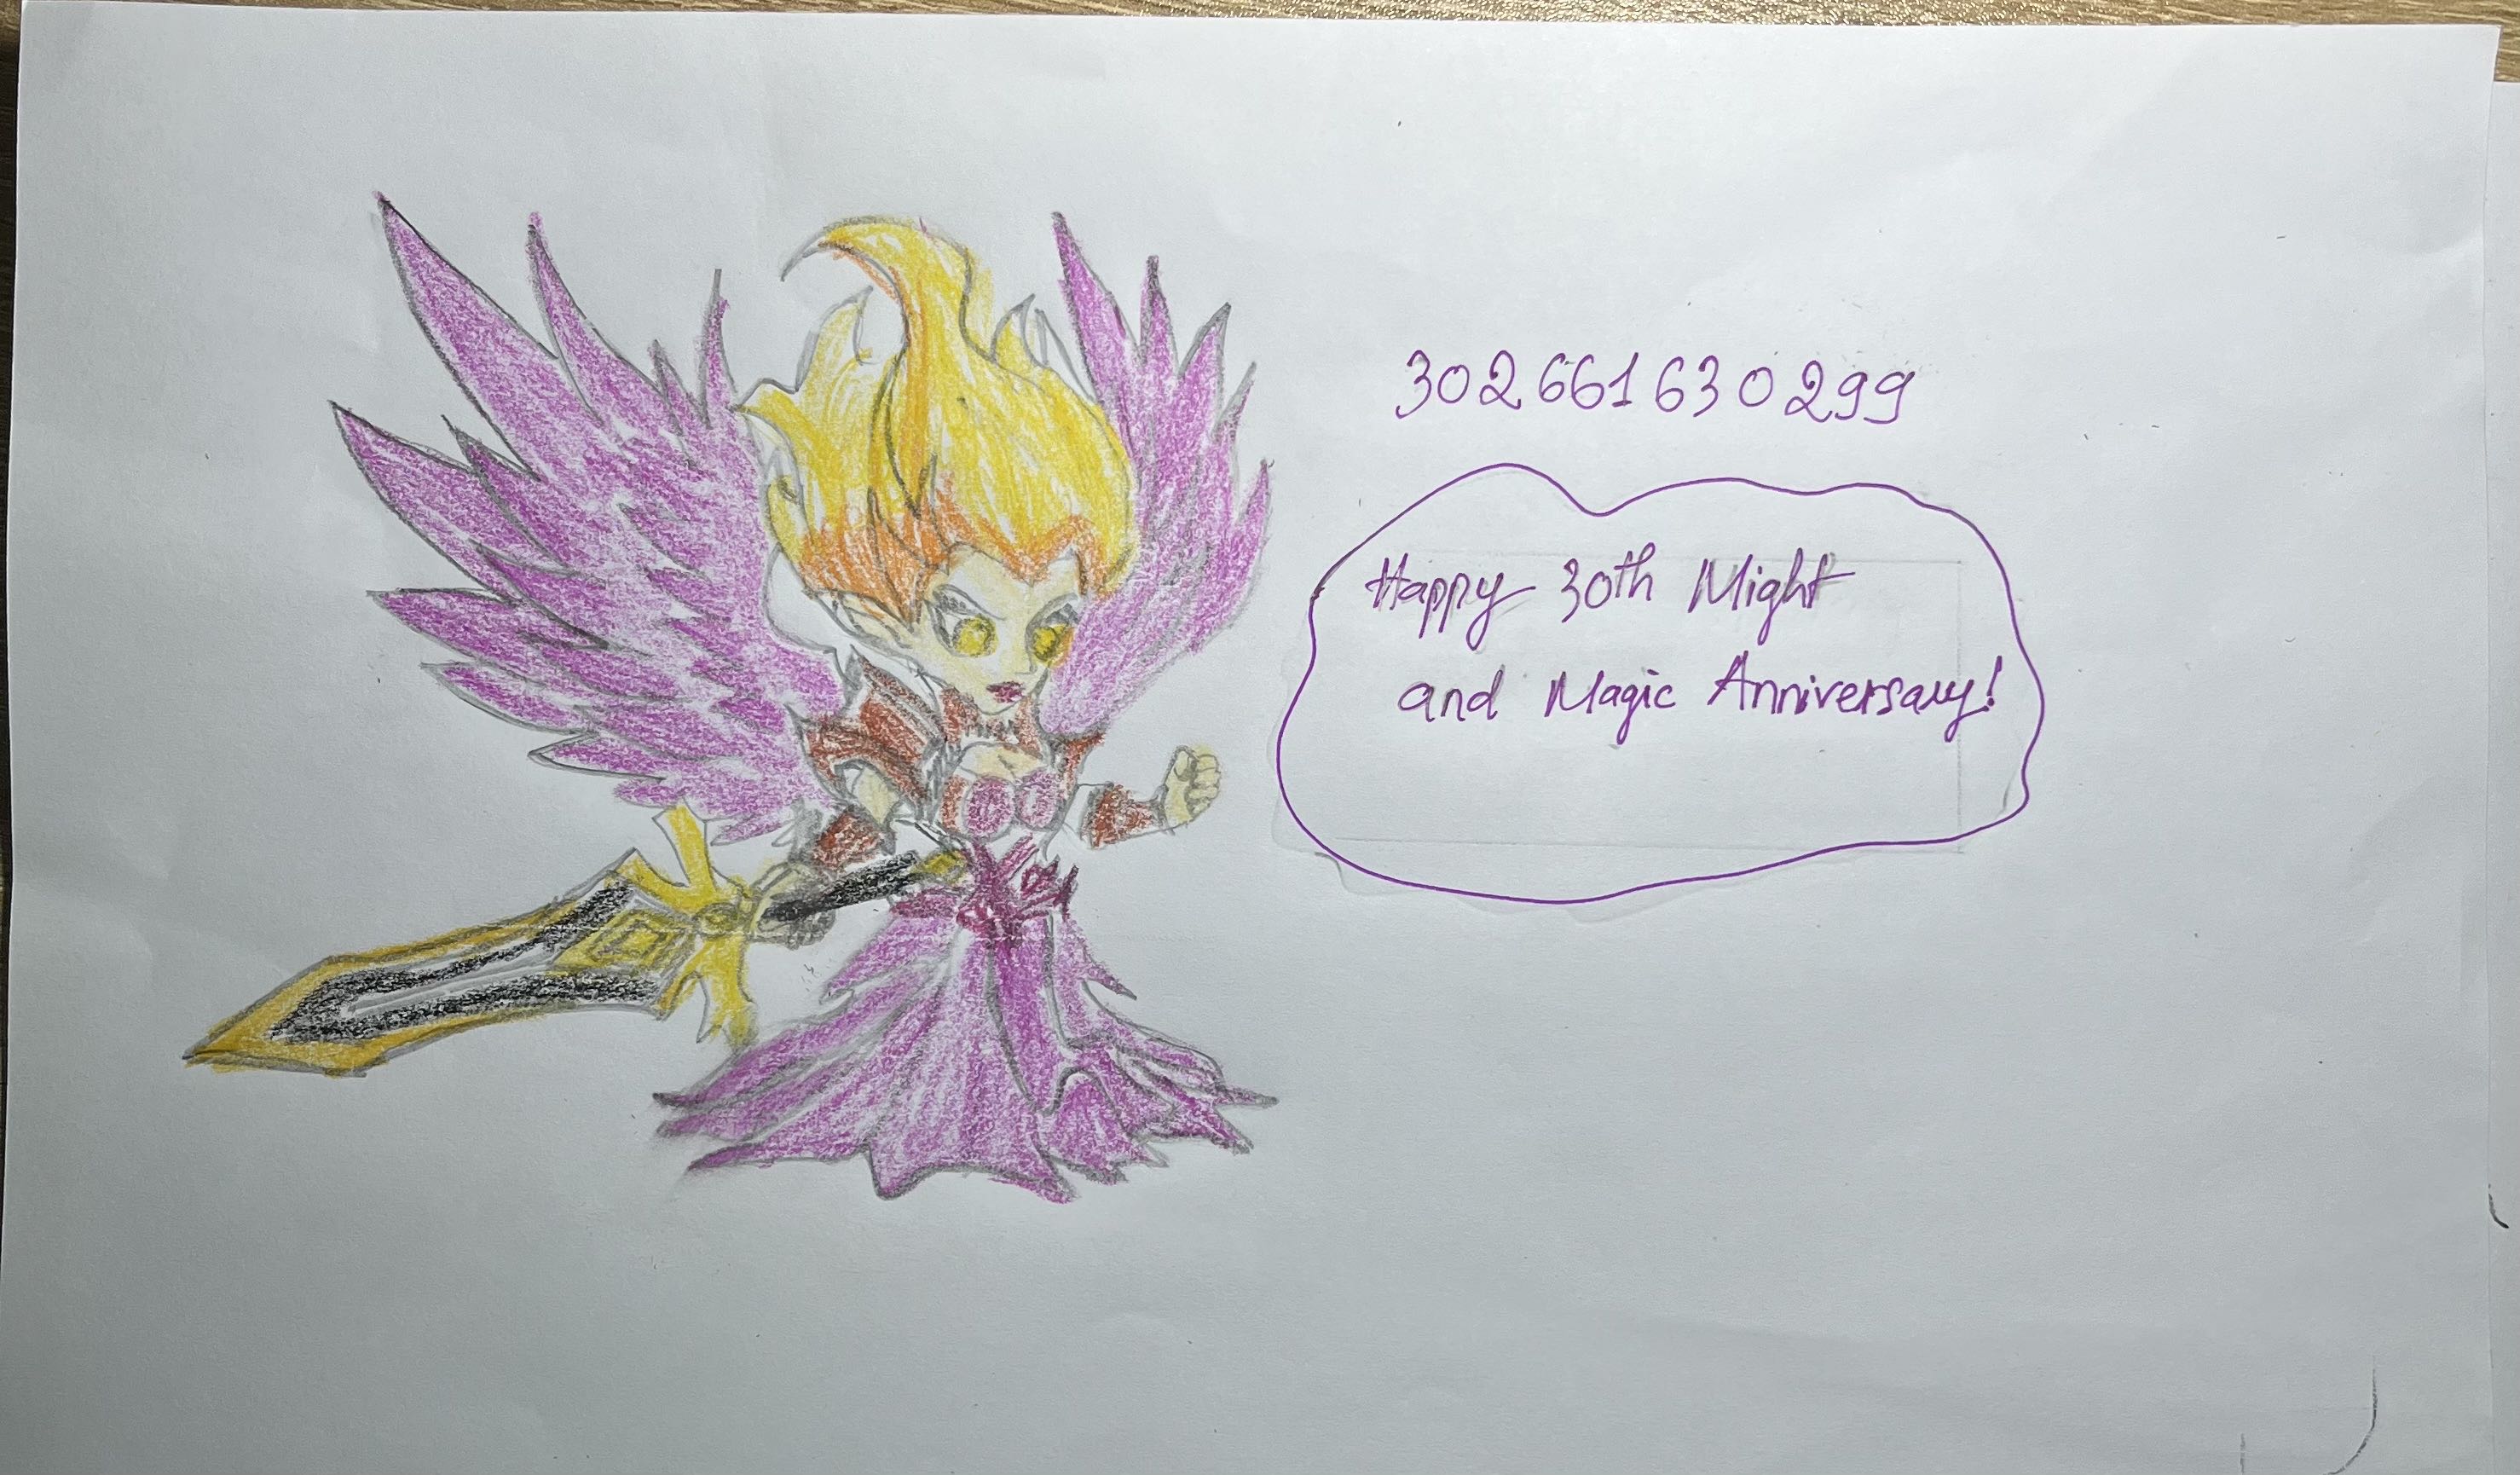 302661630299
Happy 30th Might
and Magic Anniversary!